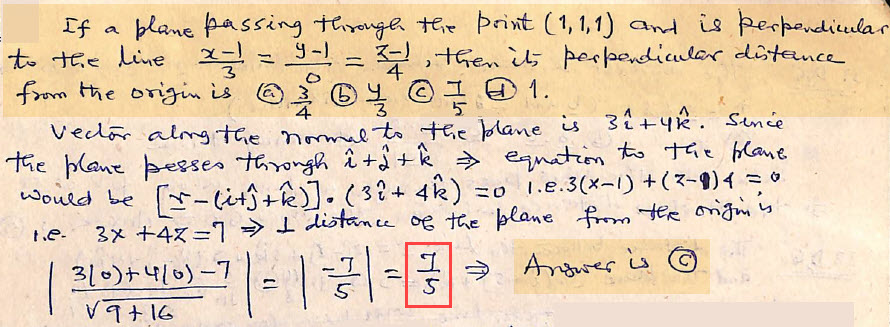 If a plane passing through the point (1,1,1) and is perpendicular
to the line (x-1)/3 = (y-1)/0 = (z-1)/4, then its perpendicular distance
from the origin is (a) 3/4 (b) 4/3 (c) 7/5 (d) 1.
Vector along the normal to the plane is 3î+4k̂. Since
the plane passes through î+ĵ+k̂ ⇒ equation to the plane
would be [r-(i+ĵ+k̂)].(3î+4k̂)=0 i.e. 3(x-1)+(z-1)4=0
i.e. 3x+4z=7 ⇒ ⊥ distance of the plane from the origin is
|(3(0)+4(0)-7)/√(9+16)| = |-7/5| = 7/5 ⇒ Answer is (c)